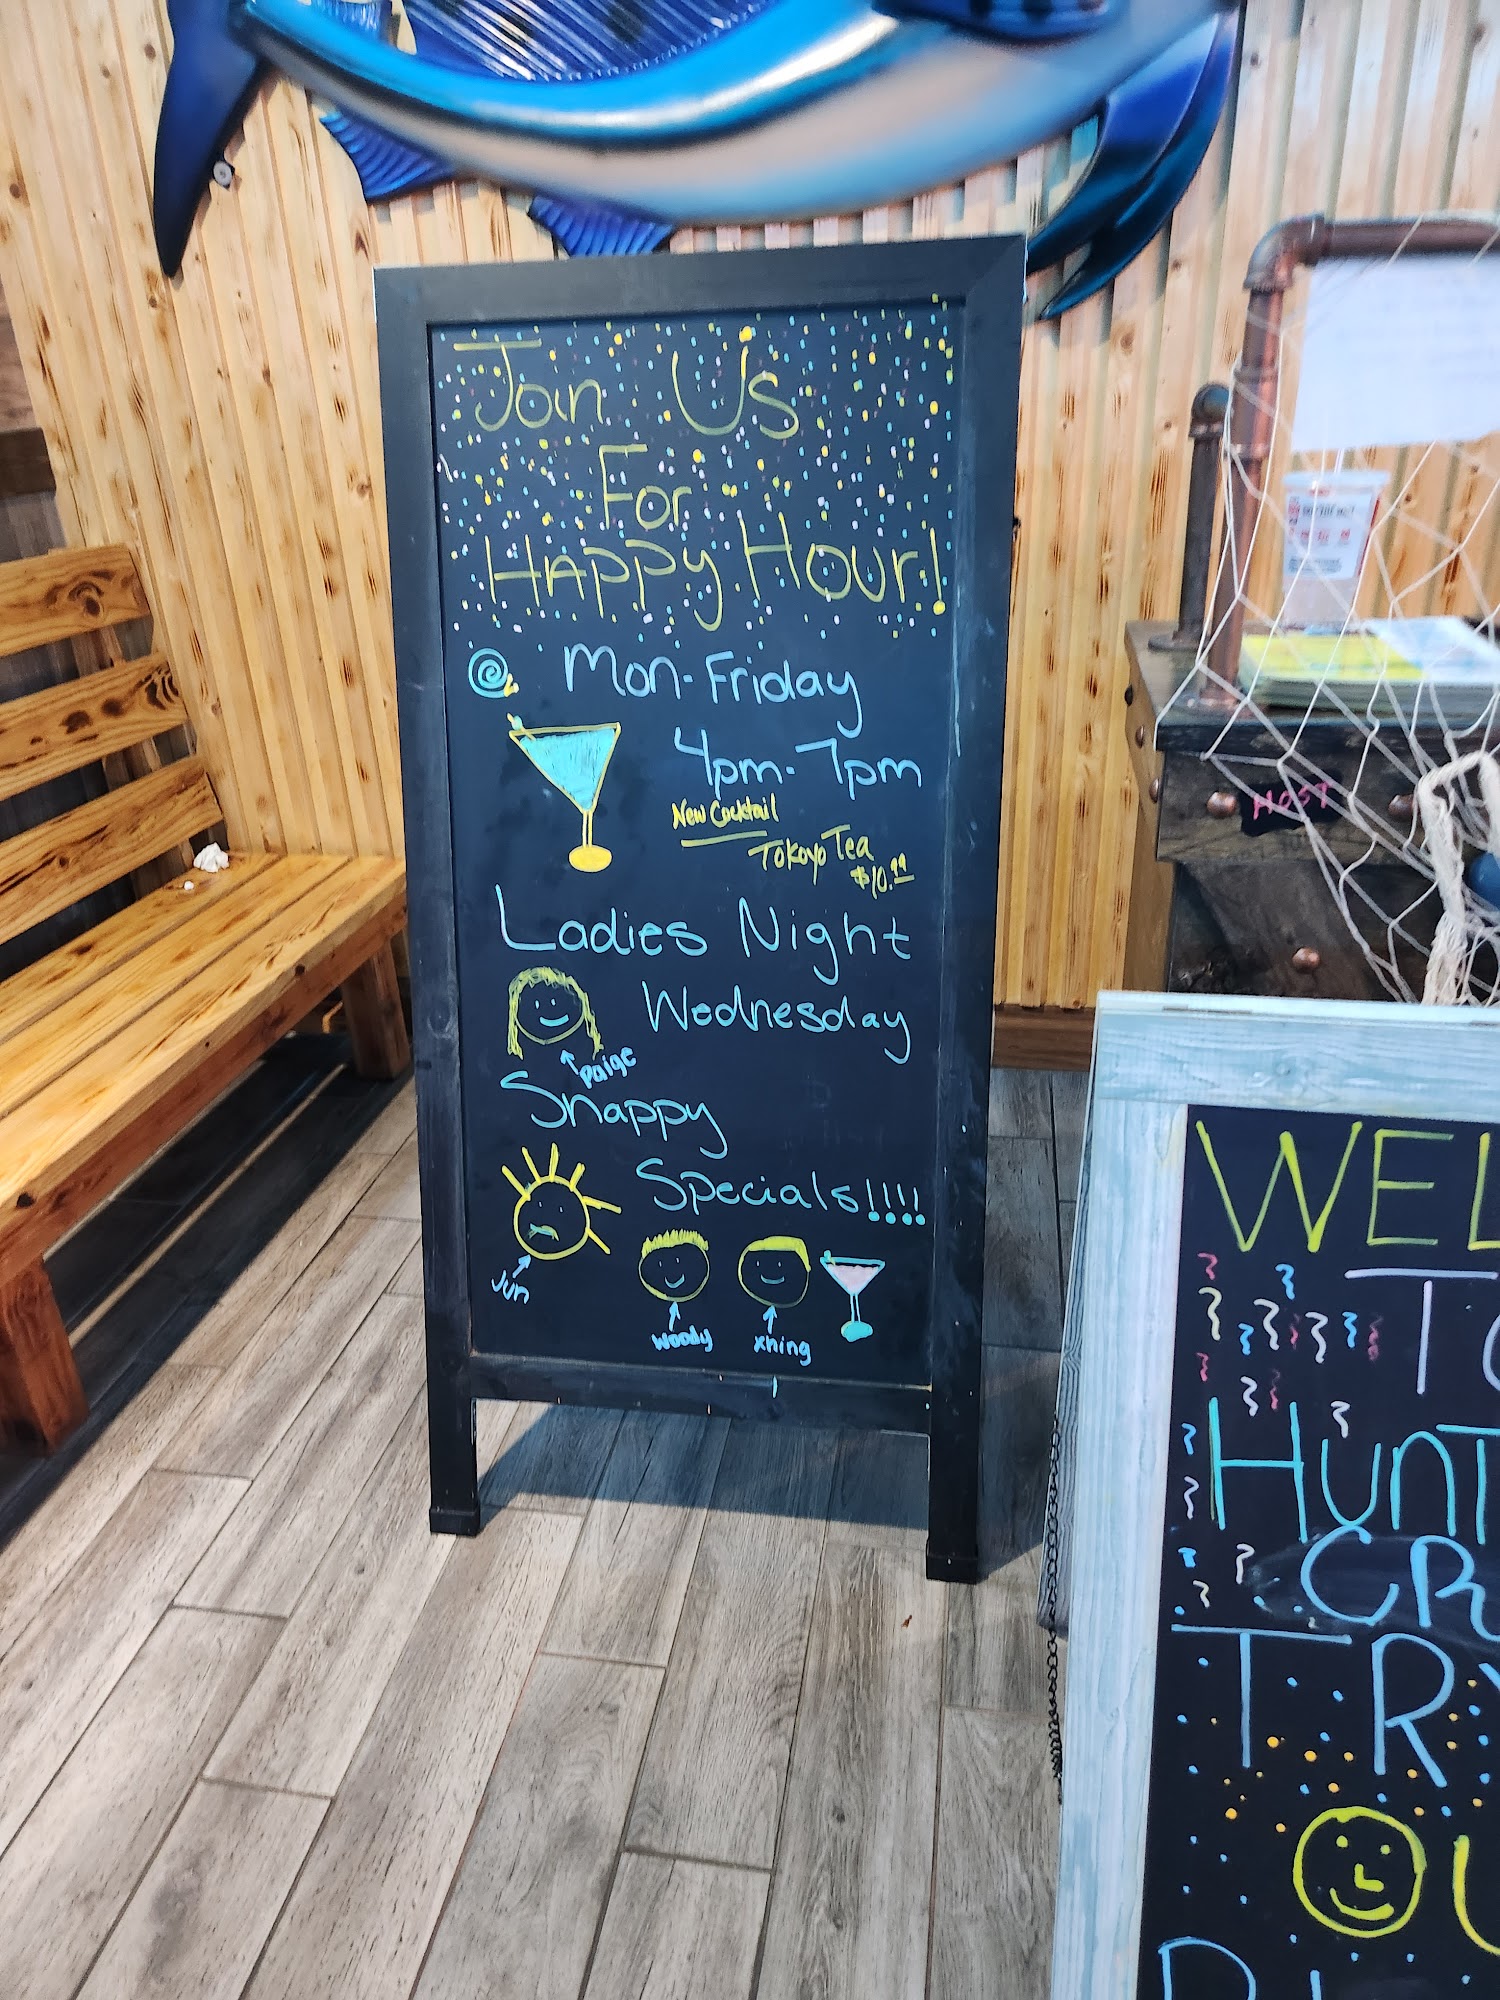 Join Us
For
Happy Hour!
Mon-Friday
4pm-7pm
New Cocktail
Tokoyo Tea
$10.99
Ladies Night
Wednesday
Paige
Snappy
Specials!!!!
Jun
Woody
xhing
HOST
WEL
TO
HUNT
CR
TRY
OU